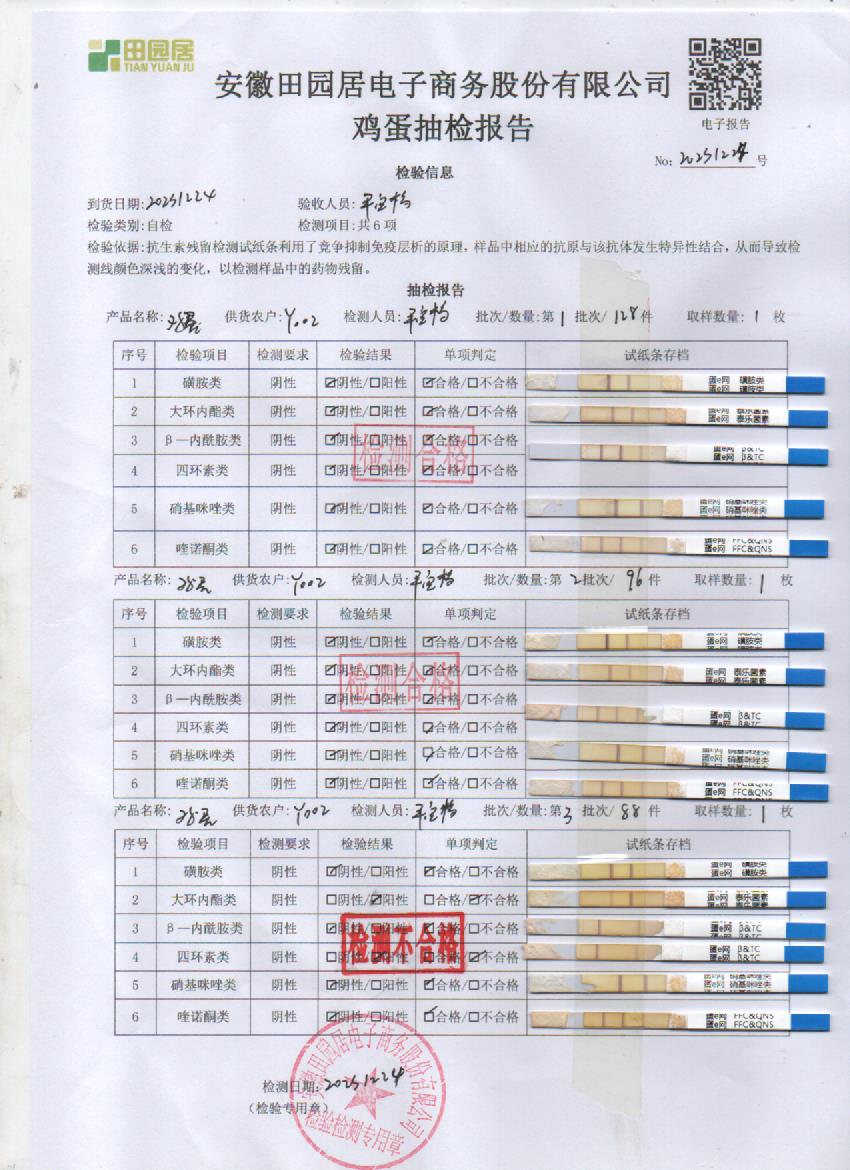 田园居
TIAN YUAN JU
安徽田园居电子商务股份有限公司
鸡蛋抽检报告
电子报告
No: 20251224 号
检验信息
到货日期:20251224 验收人员:
检验类别:自检 检测项目:共6项
检验依据:抗生素残留检测试纸条利用了竞争抑制免疫层析的原理，样品中相应的抗原与该抗体发生特异性结合，从而导致检
测线颜色深浅的变化，以检测样品中的药物残留。
抽检报告
产品名称: 供货农户:Y002 检测人员: 批次/数量:第1批次/128件 取样数量:1枚
序号 检验项目 检测要求 检验结果 单项判定 试纸条存档
1 磺胺类 阴性 ☑阴性/☐阳性 ☑合格/☐不合格 蛋e网 磺胺类
2 大环内酯类 阴性 ☑阴性/☐阳性 ☑合格/☐不合格 蛋e网 泰乐菌素
3 β—内酰胺类 阴性 ☑阴性/☐阳性 ☑合格/☐不合格 蛋e网 β&TC
4 四环素类 阴性 ☑阴性/☐阳性 ☑合格/☐不合格
检测合格
5 硝基咪唑类 阴性 ☑阴性/☐阳性 ☑合格/☐不合格 蛋e网 硝基咪唑类
6 喹诺酮类 阴性 ☑阴性/☐阳性 ☑合格/☐不合格 蛋e网 FFC&QNS
产品名称: 供货农户:Y002 检测人员: 批次/数量:第2批次/96件 取样数量:1枚
序号 检验项目 检测要求 检验结果 单项判定 试纸条存档
1 磺胺类 阴性 ☑阴性/☐阳性 ☑合格/☐不合格 蛋e网 磺胺类
2 大环内酯类 阴性 ☑阴性/☐阳性 ☑合格/☐不合格 蛋e网 泰乐菌素
检测合格
3 β—内酰胺类 阴性 ☑阴性/☐阳性 ☑合格/☐不合格 蛋e网 β&TC
4 四环素类 阴性 ☑阴性/☐阳性 ☑合格/☐不合格
5 硝基咪唑类 阴性 ☑阴性/☐阳性 ☑合格/☐不合格 蛋e网 硝基咪唑类
6 喹诺酮类 阴性 ☑阴性/☐阳性 ☑合格/☐不合格 蛋e网 FFC&QNS
产品名称: 供货农户:Y002 检测人员: 批次/数量:第3批次/88件 取样数量:1枚
序号 检验项目 检测要求 检验结果 单项判定 试纸条存档
1 磺胺类 阴性 ☑阴性/☐阳性 ☑合格/☐不合格 蛋e网 磺胺类
2 大环内酯类 阴性 ☐阴性/☑阳性 ☐合格/☑不合格 蛋e网 泰乐菌素
3 β—内酰胺类 阴性 ☑阴性/☐阳性 ☑合格/☐不合格 蛋e网 β&TC
检测不合格
4 四环素类 阴性 ☐阴性/☑阳性 ☐合格/☑不合格 蛋e网 β&TC
5 硝基咪唑类 阴性 ☑阴性/☐阳性 ☑合格/☐不合格 蛋e网 硝基咪唑类
6 喹诺酮类 阴性 ☑阴性/☐阳性 ☑合格/☐不合格 蛋e网 FFC&QNS
安徽田园居电子商务股份有限公司
检测日期:20251224
(检验专用章)
检验检测专用章